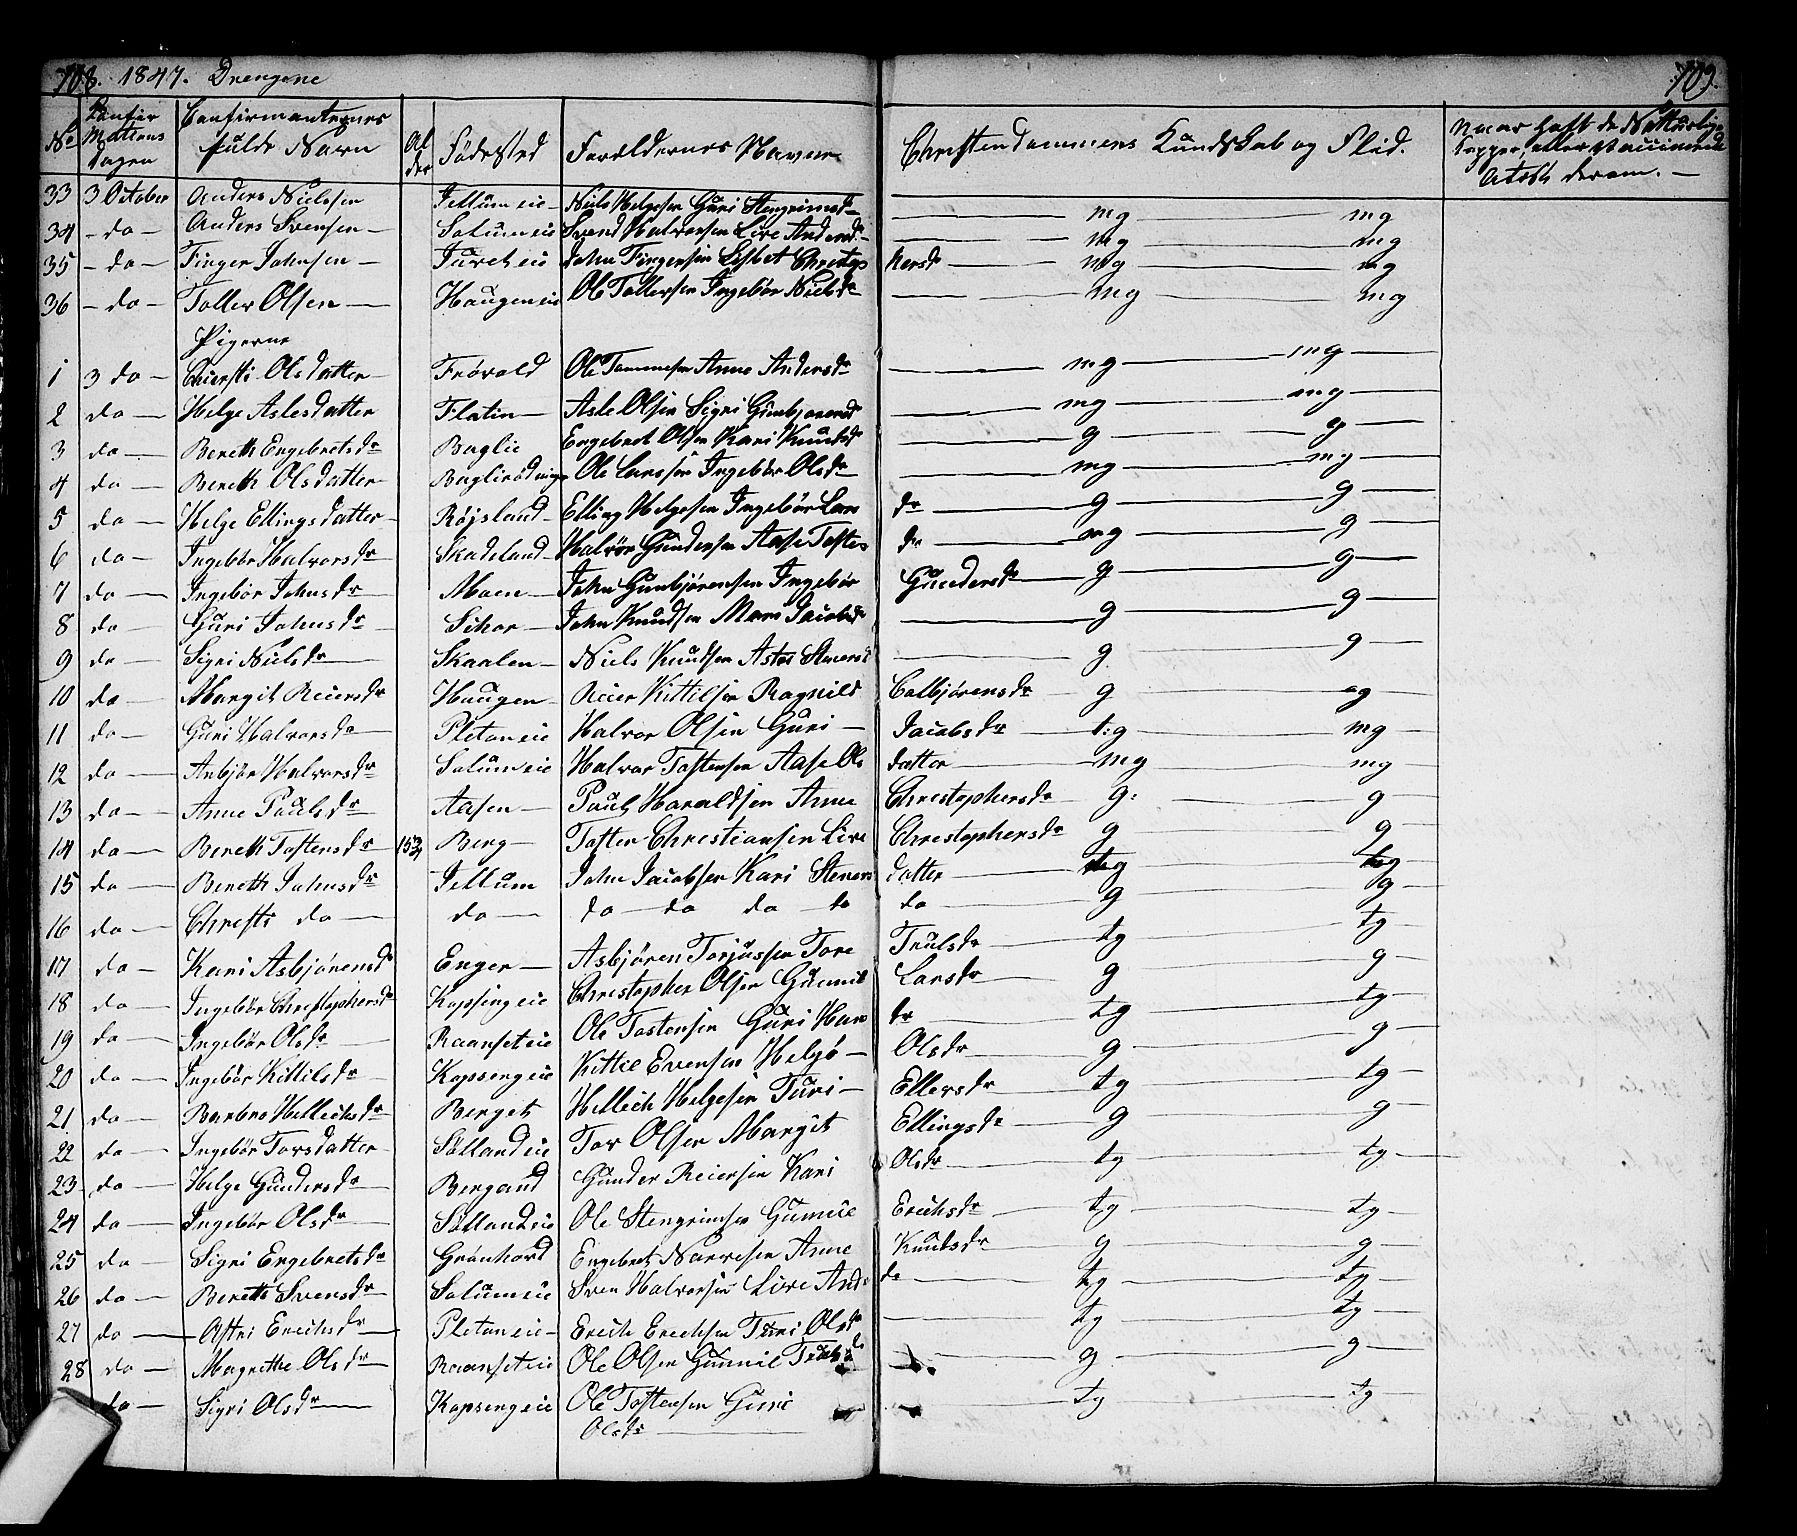 708. 1847. Drengene 709.
No Confirmationsdagen Confirmanternes fulde Navn Alder Fødested Forældernes Navne Christendommens Kundskab og Flid. Naar haft de Naturlige Kopper, eller Vaccinerede Attest derom. —
33 3 October Anders Nielsen Jellumeie — Niels Helgesen Guri Stengrimsdr — mg — mg
34 - do - Anders Svensen — Solumeie Svend Halvorsen Live Andersdr — mg — mg
35 - do - Finger Johnsen — eie John Fingersen Lisbet Christophersdr — mg — mg
36 - do - Toller Olsen — Haugeneie Ole Tollersen Ingebør Nielsdr — mg — mg
Pigerne
1 3 do — Chiersti Olsdatter — Frövold Ole Tommesen Anne Andersdr — mg — mg —
2 do — Helge Aslesdatter Flatin — Asle Olsen Sigri Gunbjørnsd — mg — mg —
3 do — Bereth Engebretsdr Baglie Engebret Olsen Kari Knudsd — g — g —
4 do — Bereth Olsdatter Ole Larssen Ingebør Olsdr — mg — mg —
5 do — Helge Ellingsdatter — Röjsland — Elling Helgesen Ingebör Lars dr — g — g
6 do — Ingebör Halvorsdr Skadeland — Halvör Gundersen Aase Tostens dr — mg — g
7 do — Ingebör Johnsdr Moen — John Gunbjörensen Ingebör Gundersdr — g — g —
8 do Guri Johnsdr Johr Knudsen Mari Jacobsd — g — g —
9 do — Sigri Nielsdr Skaalen — Niels Knudsen — g — g —
10 do — Margit Reiersdr Haugen — Reier Kittilsen Ragnild Colbjørensdr g — g
11 do — Guri Halvorsdr Pletaneie Halvor Olsen Guri — Jacobsdr — t:g — mg —
12 do — Anbjör Halvorsdr Solumeie Halvor Tostensen Aase Ols datter — mg — mg
13 do — Anne Paulsdr Aasen — Paul Haraldsen Anne Christophersdr — g: — g
14 do — Bereth Tostensdr 15¾ Berg — Tosten Christiansen Live Christophersdr g — g
15 do — Bereth Johnsdr Jellum John Jacobsen Kari Steners datter — tg — tg
16 do — Chersti do — do — do — do do — do do — g — g —
17 do — Kari Asbjörensdr Enger — Asbjören Torjussen Tore Trulsdr — tg — tg —
18 do — Ingebör Christophersdr Kopsengeie Christopher Olsen Gunnil Larsdr — g — g —
19 do — Ingebör Olsdr Raanseteie Ole Tostensen Guri Hans dr — tg — tg —
20 do — Ingebör Kittilsdr — Kopsengeie Kittil Evensen Helgö — Olsdr — g — g —
21 do — Barbro Hellechsdr Berget Hellech Helgesen Turi — Ellersdr — tg — tg —
22 do — Ingebör Torsdatter — Söllandeie Tor Olsen Margit Ellingsdr — g — g —
23 do — Helge Gundersdr — Bergand Gunder Reiersen Kari Olsdr — tg — tg —
24 do — Ingebör Olsdr — Söllandeie Ole Stengrimsen Gunnil Erichsdr — tg — tg —
25 do — Sigri Engebretsdr Grönhovd Engebret Narvesen Anne Knudsdr — g — g —
26 do — Bereth Svensdr Solumeie Sven Halvorsen Live Andr dr — tg — tg —
27 do — Astri Erichsdr — Pletaneie — Erich Erichsen Turi Olsdr — tg — tg —
28 do — Magrethe Olsdr Raanseteie Ole Olsen Gunnil Trulsdr — g — g —
do — Sigri Olsdr — Kopsengeie Ole Tostensen Guri Olsdr — tg — tg —